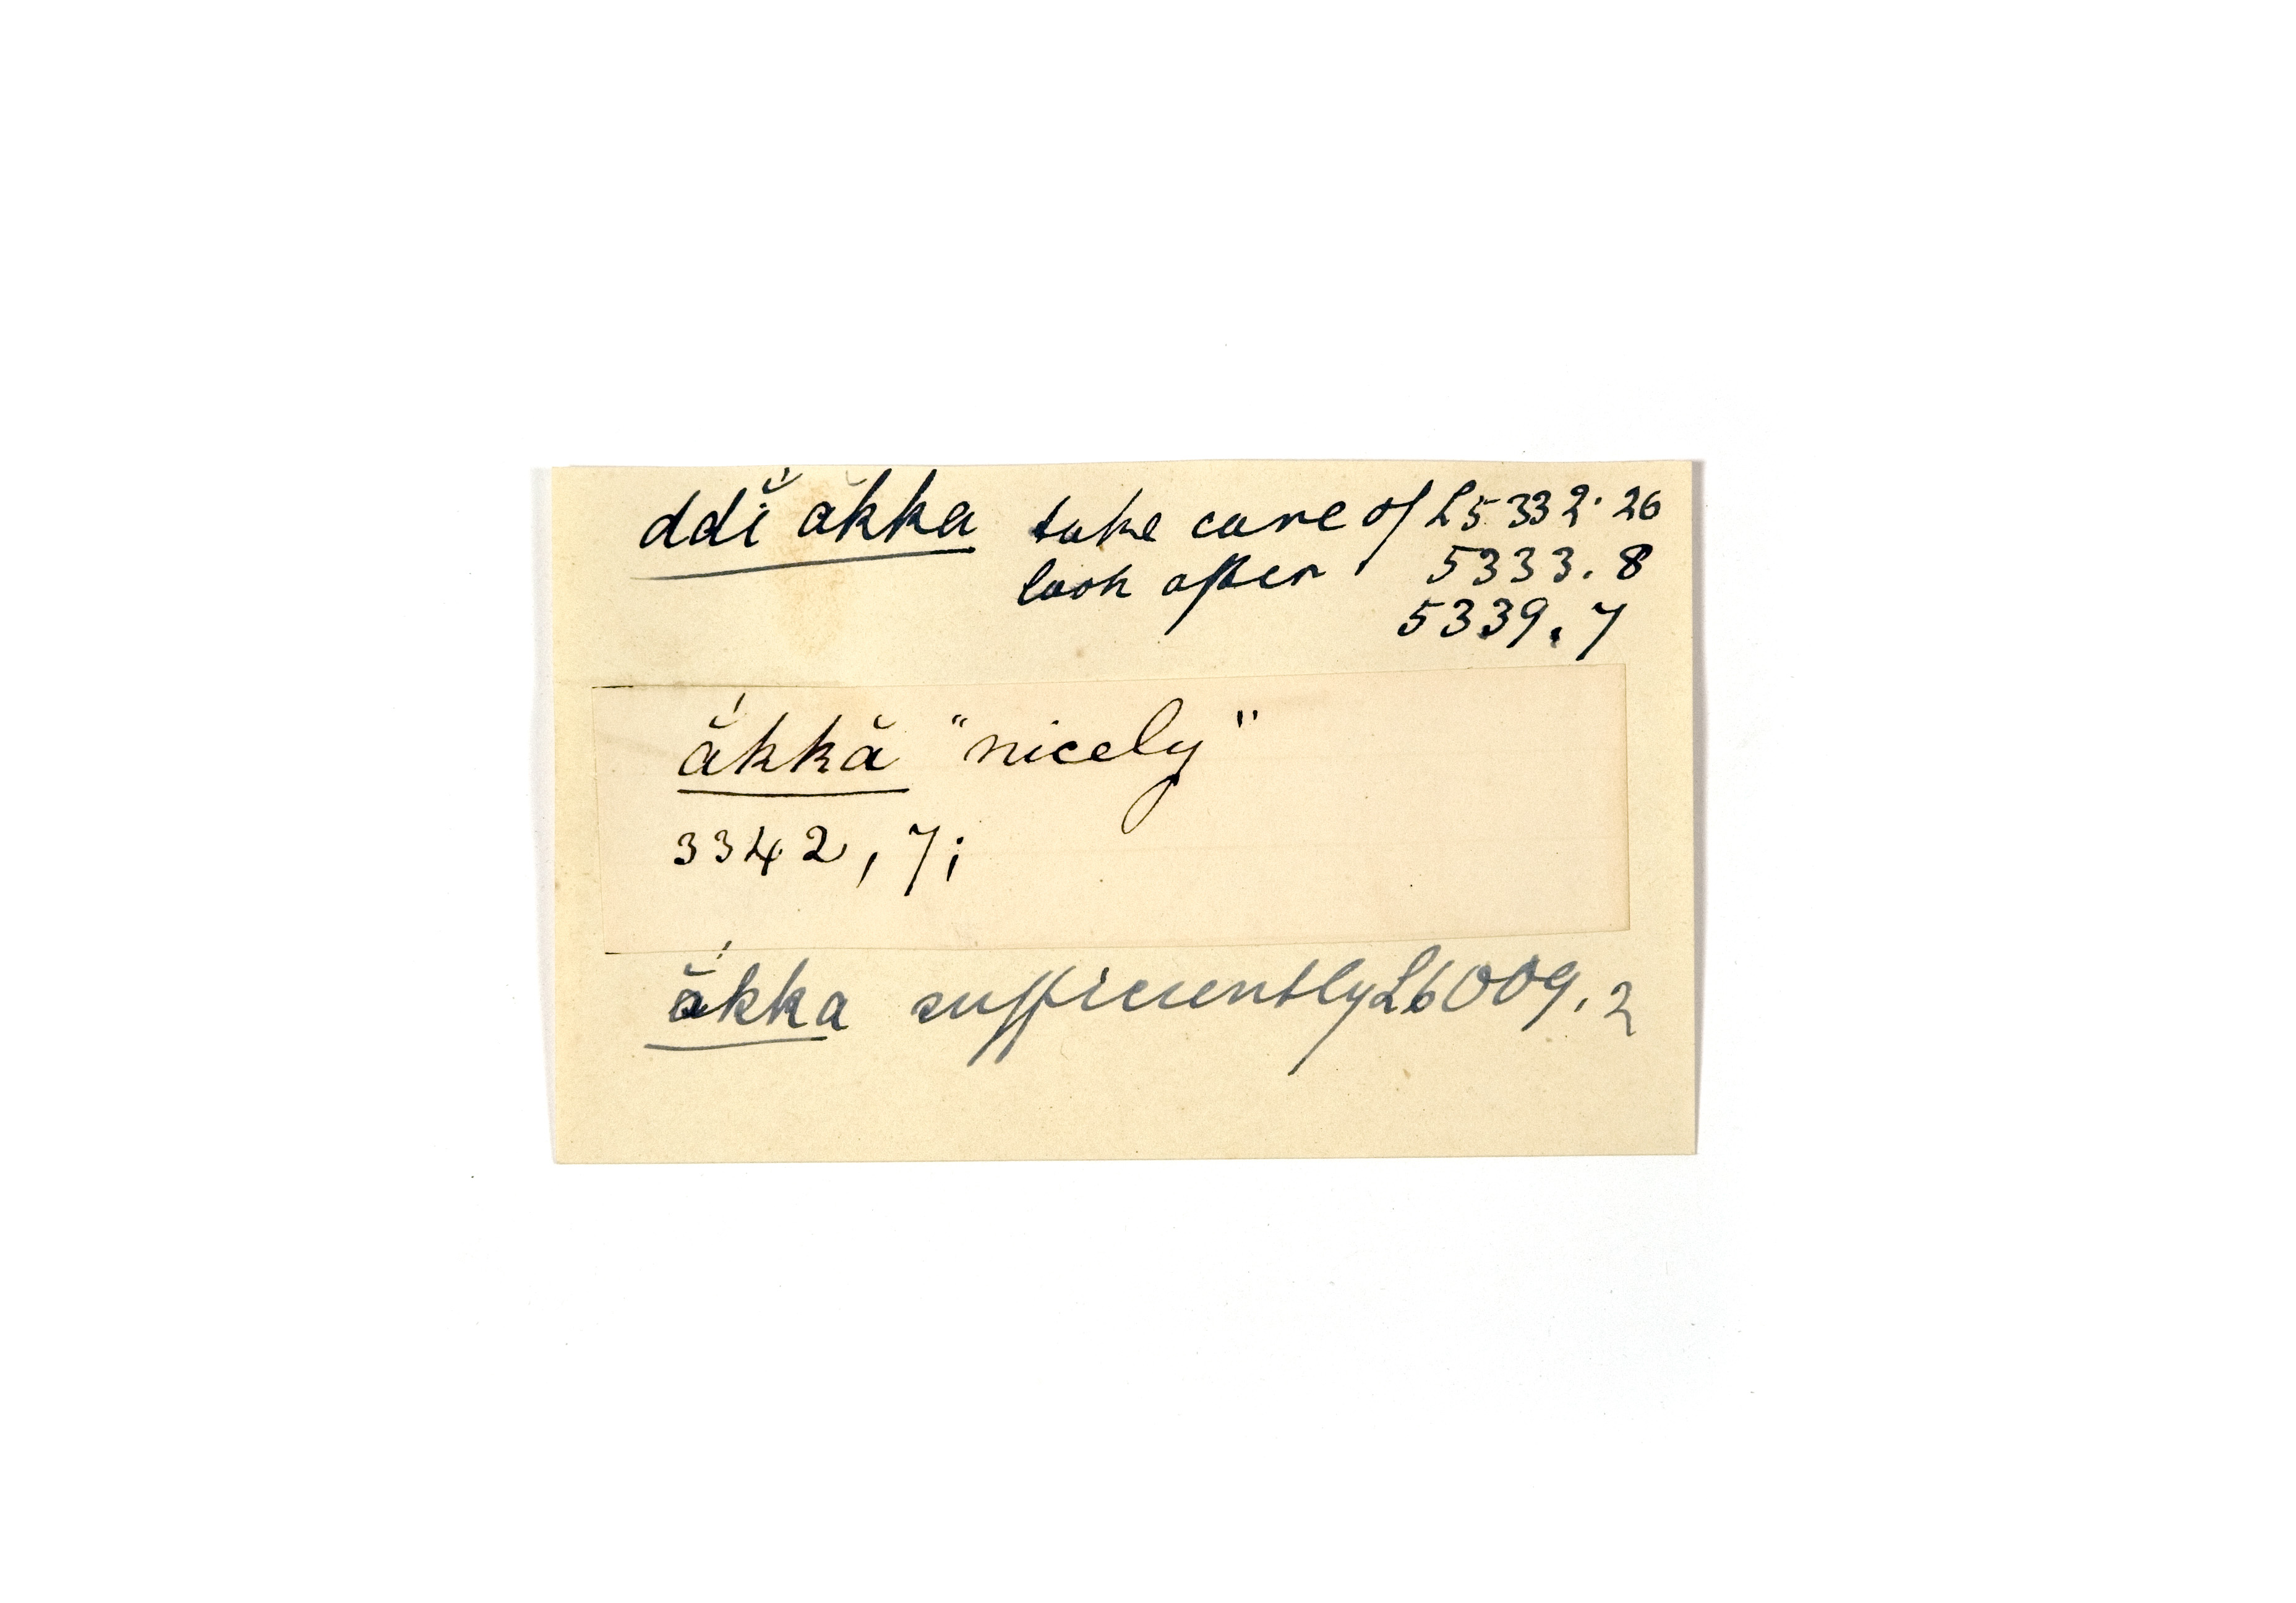 ddĭ́ ăkka take care of L5332.26
look after 5333.8
5339.7
ắkkă "nicely"
3342, 7;
ắkka sufficientlyL6009.2